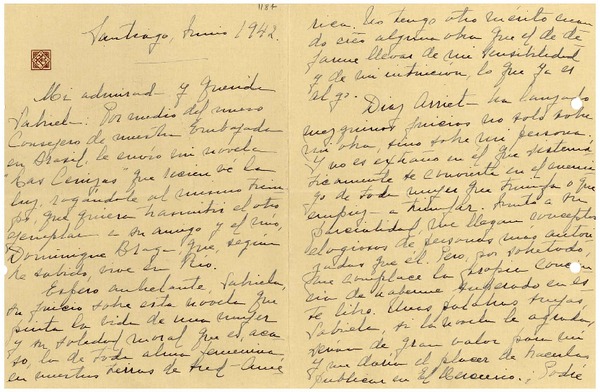 1187
Santiago, Junio 1942.
Mi admirada y querida
Gabriela: Por medio del nuevo
Consejero de nuestra Embajada
en Brasil, le envío mi novela
"Las Cenizas" que recien vé la
luz, rogándole al mismo tiem
po, que quiera trasmitir el otro
ejemplar a su amigo y el mío,
Domingue Braga, que, según
he sabido, vive en Río.
Espero anhelante, Gabriela,
su juicio sobre esta novela que
pinta la vida de una mujer
y su soledad moral que es, aca
so, la de toda alma femenina
en nuestras tierras de Sud-Amé
rica. No tengo otro mérito cuan
do creo alguna obra que el de de
jarme llevar de mi sensibilidad
y de mi intuición, lo que ya es
algo.
Díaz Arrieta ha lanzado
mezquinos juicios no solo sobre
mi obra, sino sobre mi persona.
Y no es extraño en el que sistemá
ticamente se convierte en el enemi
go de toda mujer que triunfa o que
empieza a triunfar. Junto a su
parcialidad, me llegan conceptos
elogiosos de personas mas autori
zadas que él. Pero, por sobre todo,
me complace la propia concien
cia de haberme superado en es
te libro. Unas palabras suyas,
Gabriela, si la novela le agrada,
serían de gran valor para mí
y me daría el placer de hacerlas
publicar en El Mercurio. Podré